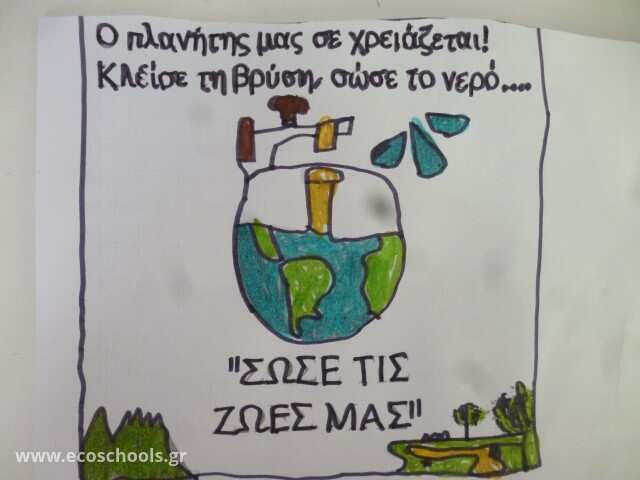 Ο πλανήτης μας σε χρειάζεται!
Κλείσε τη βρύση, σώσε το νερό....
"ΣΩΣΕ ΤΙΣ
ΖΩΕΣ ΜΑΣ"
www.ecoschools.gr